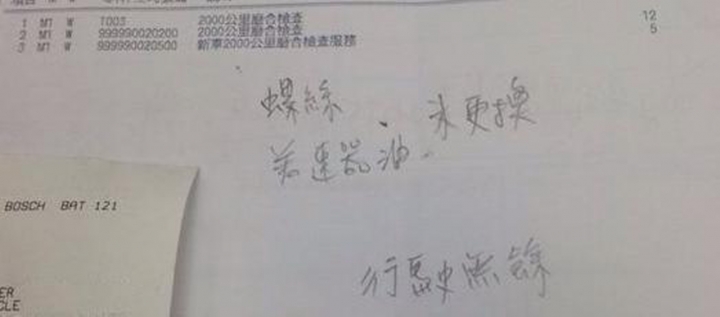 1 M1 W T003 2000公里廠合檢查 12
2 M1 W 999990020200 2000公里廠合檢查 5
3 M1 W 999990020500 新車2000公里廠合檢查服務
螺絲、未更換
差速器油.
BOSCH BAT 121
行駛無
ER
CLE